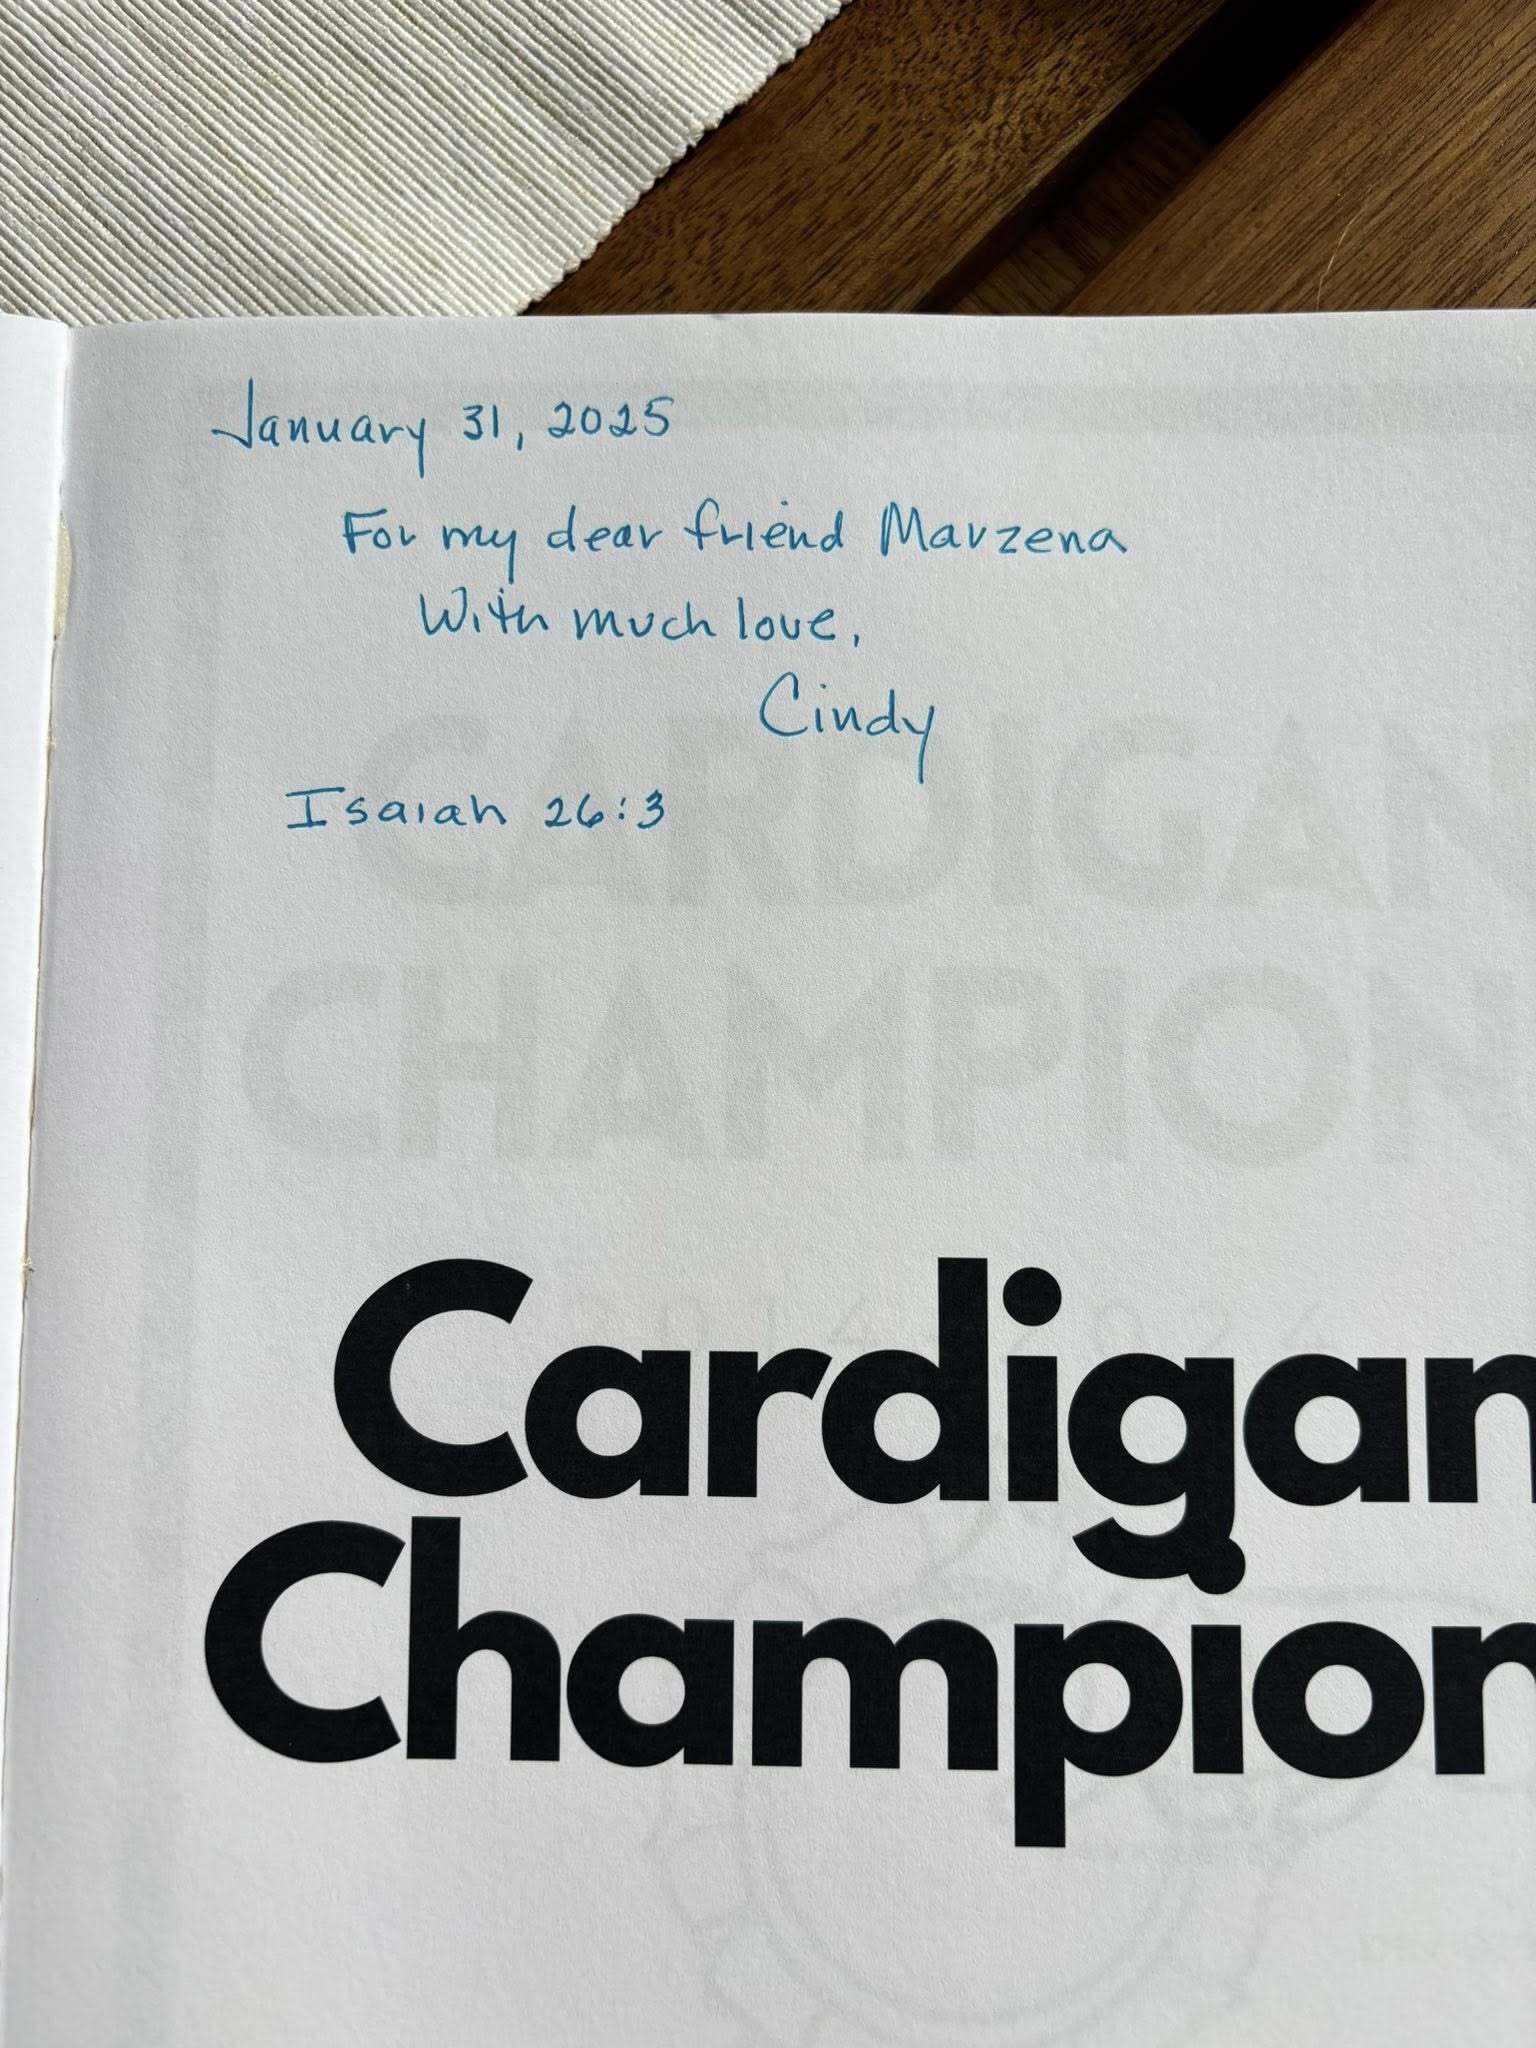 January 31, 2025
For my dear friend Marzena
With much love,
Cindy
Isaiah 26:3
CARDIGAN
CHAMPION
Cardigan
Champion